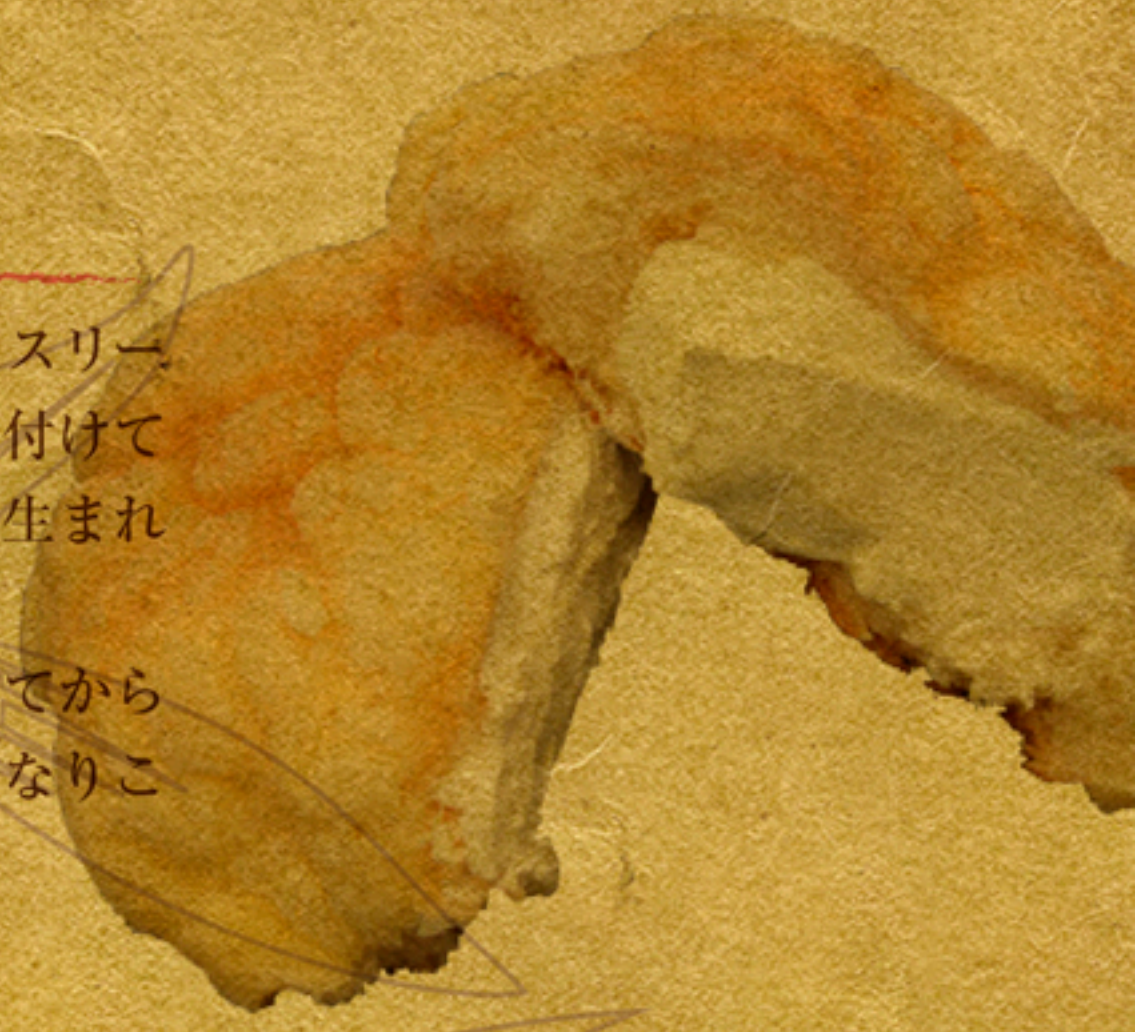 スリー
付けて
生まれ
てから
なりこ